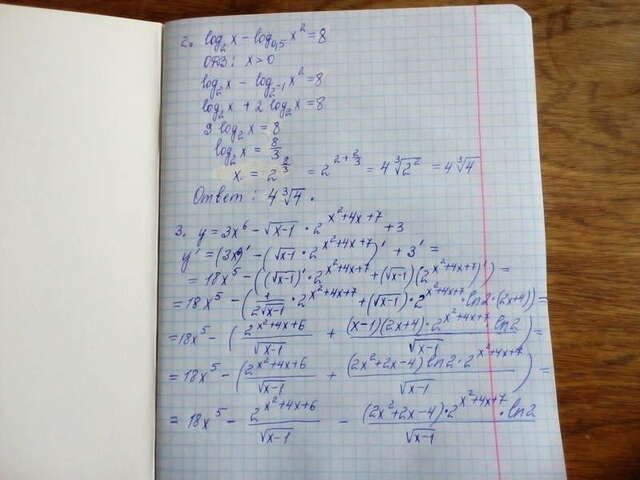 2. log₂x − log₀,₅x² = 8
ОДЗ: x > 0
log₂x − log₂₋₁x² = 8
log₂x + 2 log₂x = 8
3 log₂x = 8
log₂x = 8/3
x = 2^(8/3) = 2^(2+2/3) = 4∛2² = 4∛4
Ответ: 4∛4.
3. y = 3x⁶ − √(x−1) · 2^(x²+4x+7) + 3
y' = (3x⁶)' − (√(x−1) · 2^(x²+4x+7))' + 3' =
= 18x⁵ − ((√(x−1))' · 2^(x²+4x+7) + (√(x−1))(2^(x²+4x+7))') =
= 18x⁵ − (1/(2√(x−1)) · 2^(x²+4x+7) + (√(x−1)) · 2^(x²+4x+7) · ln2 · (2x+4)) =
= 18x⁵ − (2^(x²+4x+6)/√(x−1) + (x−1)(2x+4) · 2^(x²+4x+7) ln2/√(x−1)) =
= 18x⁵ − (2^(x²+4x+6)/√(x−1) + (2x²+2x−4) ln2 · 2^(x²+4x+7)/√(x−1)) =
= 18x⁵ − 2^(x²+4x+6)/√(x−1) − (2x²+2x−4) · 2^(x²+4x+7) · ln2/√(x−1)